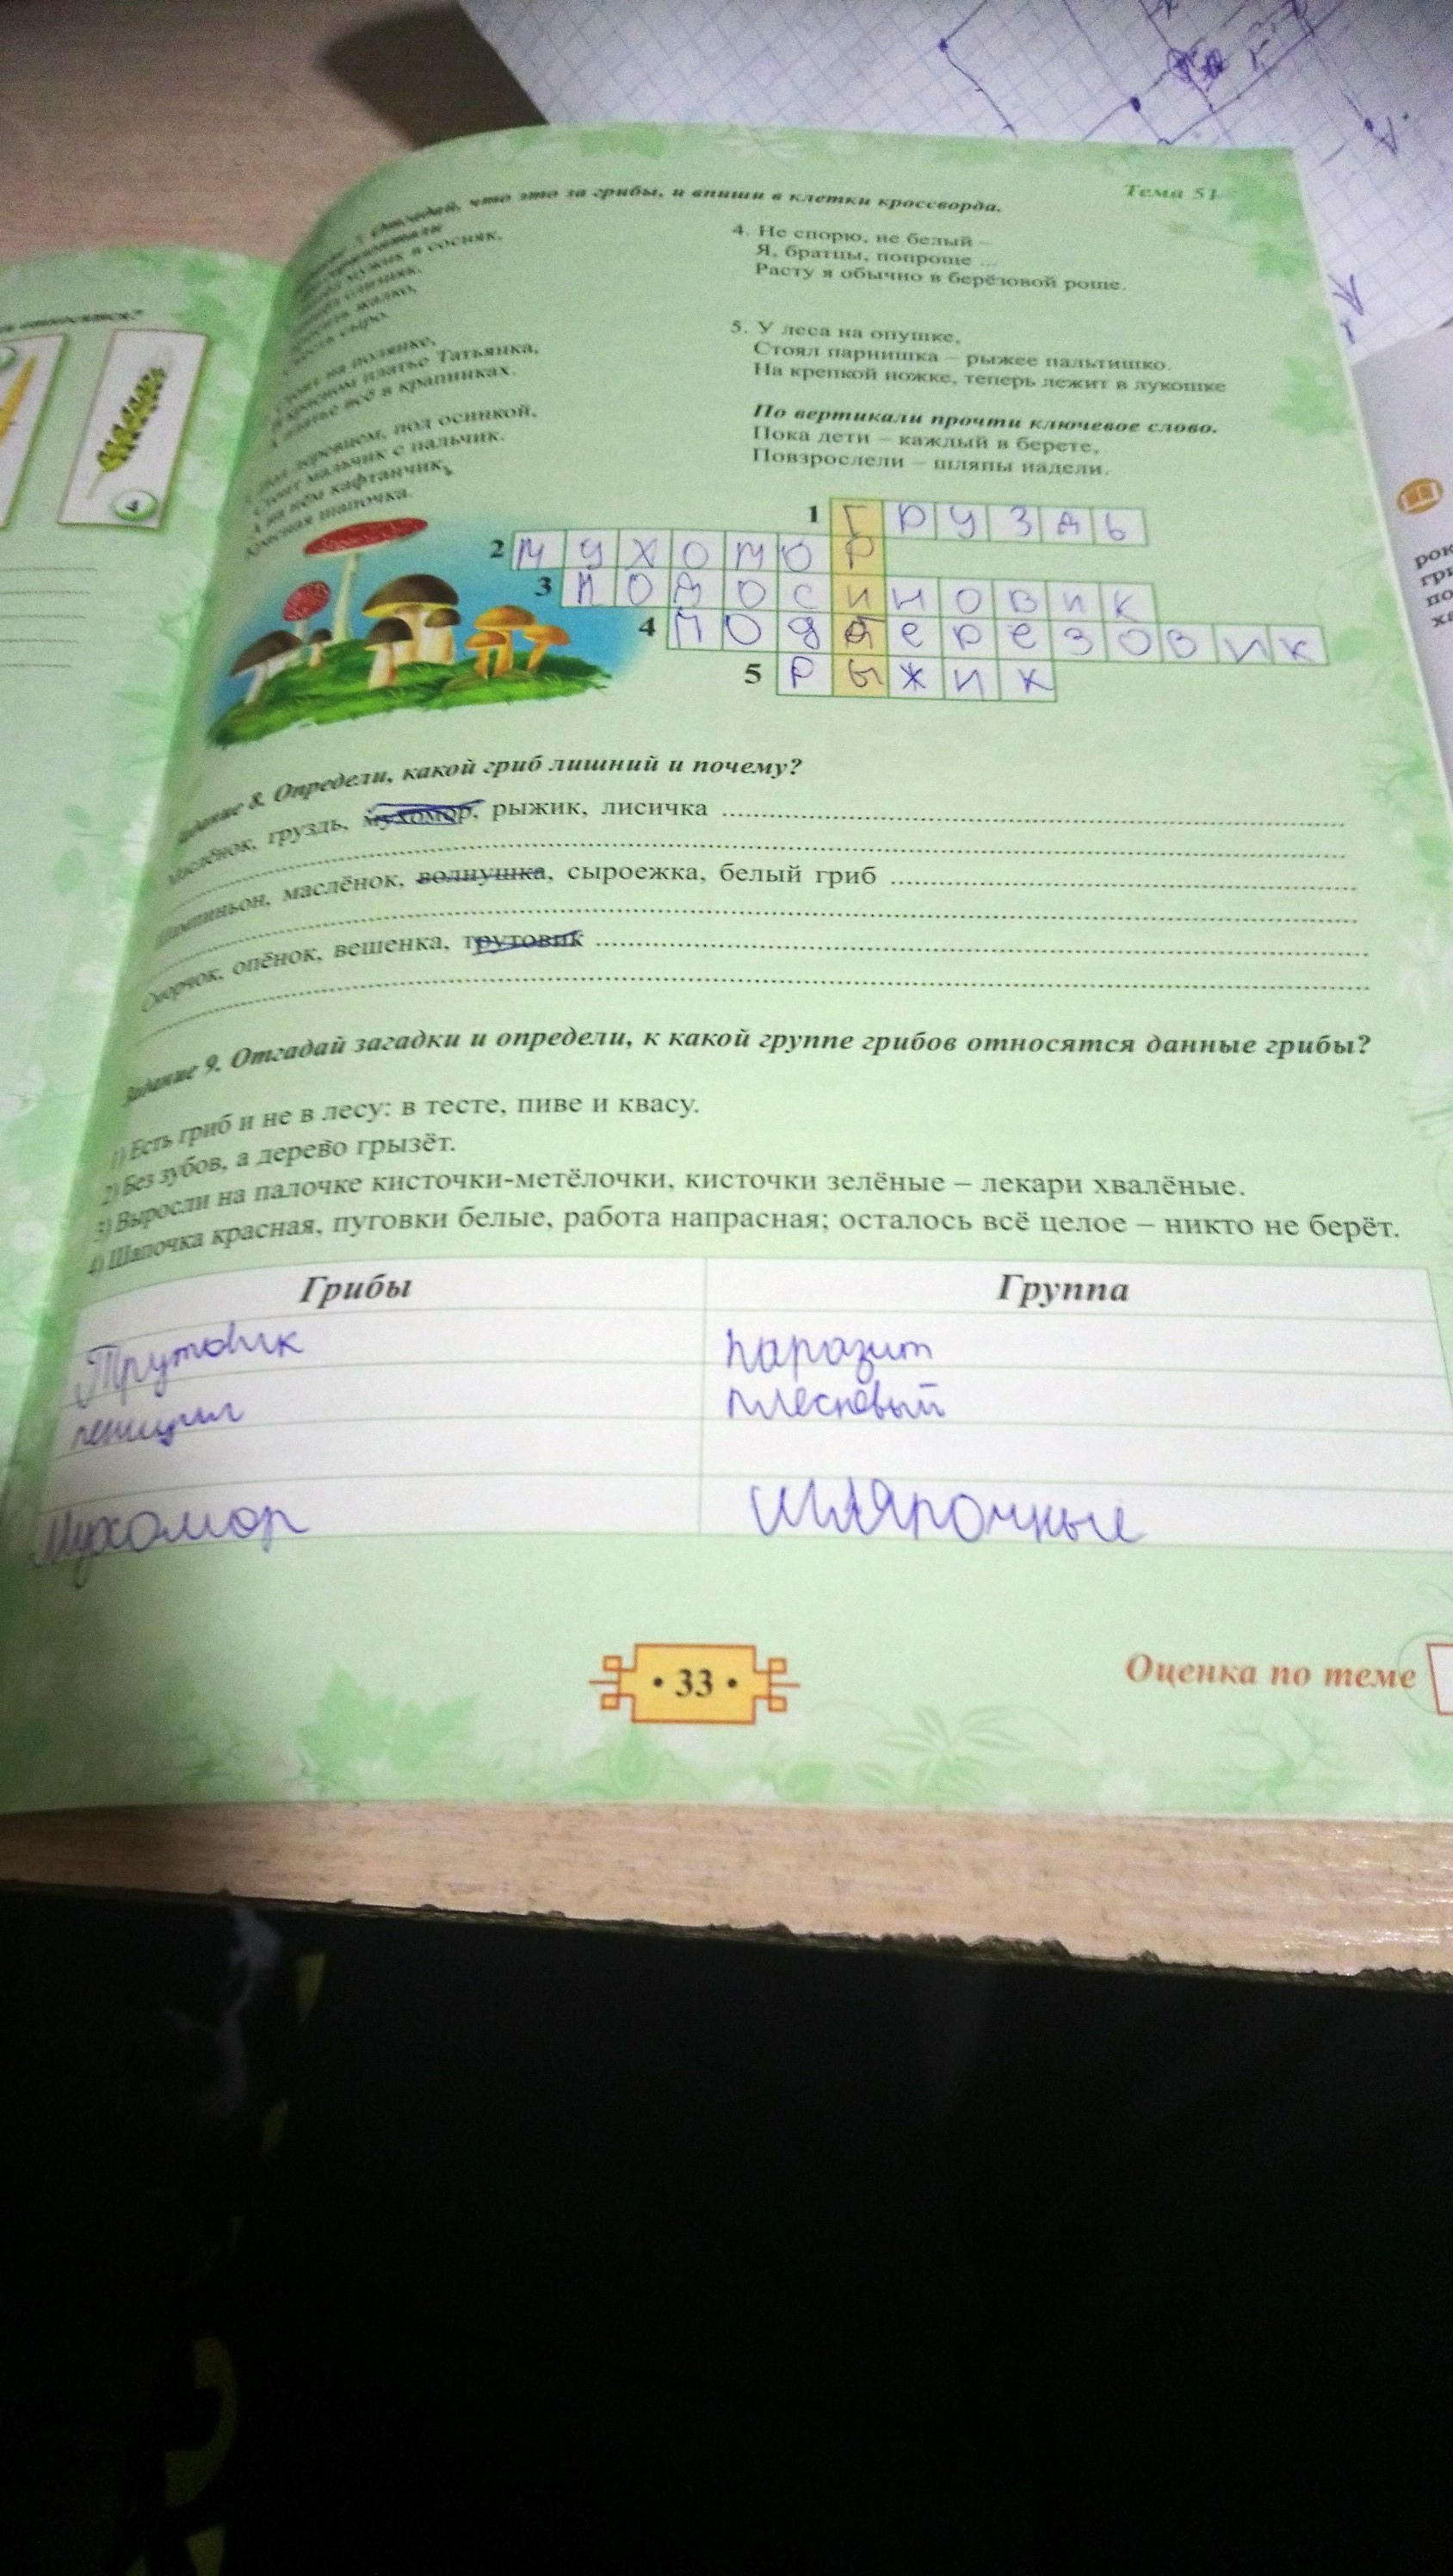 Тема 51
Отгадай, что это за грибы, и впиши в клетки кроссворда.
мужик в сосняк,
на полянке,
красном платье Татьянка,
платье всё в крапинках.
деревцем, под осинкой,
мальчик с пальчик.
А на нём кафтанчик,
Красная шапочка.
4. Не спорю, не белый –
Я, братцы, попроще ...
Расту я обычно в берёзовой роще.
5. У леса на опушке,
Стоял парнишка – рыжее пальтишко.
На крепкой ножке, теперь лежит в лукошке
По вертикали прочти ключевое слово.
Пока дети – каждый в берете,
Повзрослели – шляпы надели.
1 Груздь
2 мухомор
3 подосиновик
4 подберезовик
5 рыжик
4
Задание 8. Определи, какой гриб лишний и почему?
Маслёнок, груздь, мухомор, рыжик, лисичка
Шампиньон, маслёнок, волнушка, сыроежка, белый гриб
опёнок, вешенка, трутовик
Задание 9. Отгадай загадки и определи, к какой группе грибов относятся данные грибы?
1) Есть гриб и не в лесу: в тесте, пиве и квасу.
2) Без зубов, а дерево грызёт.
3) Выросли на палочке кисточки-метёлочки, кисточки зелёные – лекари хвалёные.
4) Шапочка красная, пуговки белые, работа напрасная; осталось всё целое – никто не берёт.
Грибы Группа
Трутовик паразит
пеницил плесневый
Мухомор шляпочные
• 33 •
Оценка по теме